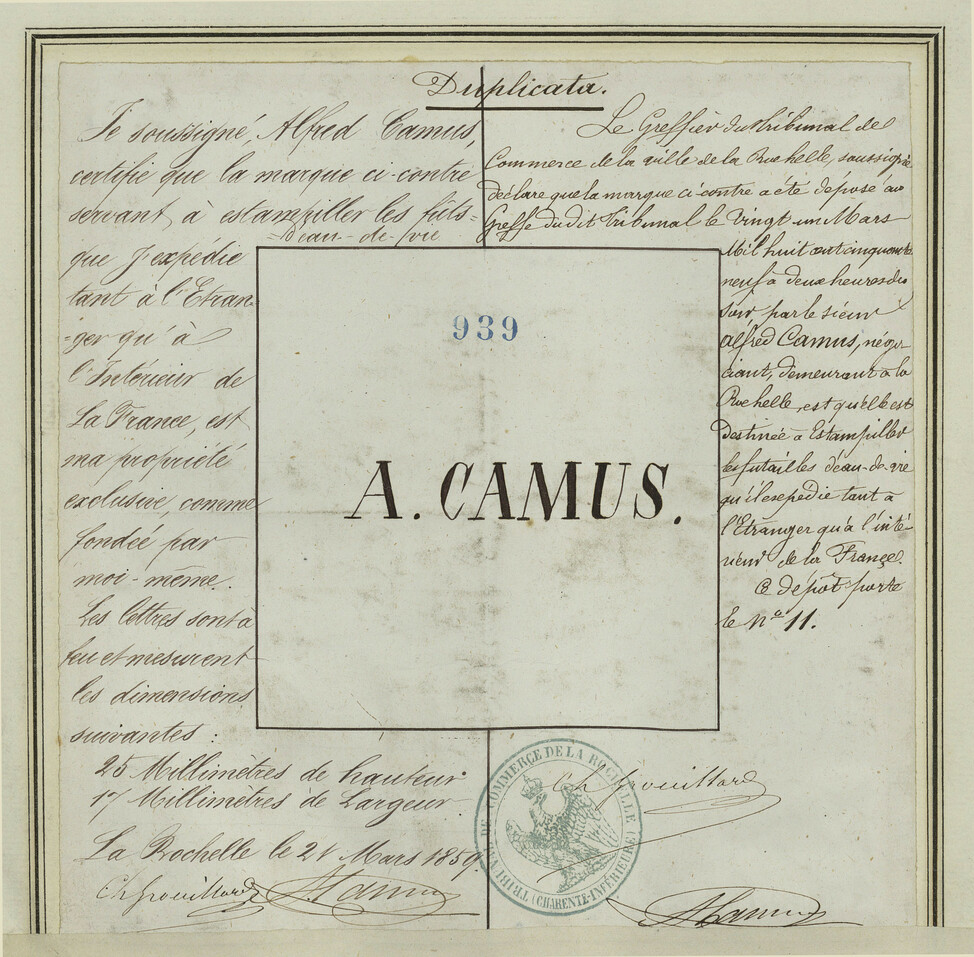 Duplicata.
Je soussigné, Alfred Camus,
certifie que la marque ci-contre
servant à estampiller les fûts=
=D'eau-de-vie
que J'expédie
tant à l'Etran-
-ger qu'à
l'Intérieur de
La France, est
ma propriété
exclusive, comme
fondée par
moi-même.
Les lettres sont à
feu et mesurent
les dimensions
suivantes :
25 Millimètres de hauteur
17 Millimètres de Largeur
La Rochelle le 21 Mars 1859.
Ch Grouillard
ACamus
Le Greffier du tribunal de
Commerce de la ville de la Rochelle, soussigné
déclare que la marque ci-contre a été déposé au
Greffe du dit tribunal le Vingt un Mars
Mil huit cent cinquante
neuf à deux heures du
soir par le sieur
Alfred Camus, négo-
ciant, demeurant à la
Rochelle, est qu'elle est
Destinée à Estampiller
les futailles d'eau-de-vie
qu'il expédie tant à
l'Etranger qu'à l'inté-
rieur de la France.
Ce dépôt porte
le No 11.
939
A. CAMUS.
Ch Grouillard
TRIBUNAL DE COMMERCE DE LA ROCHELLE
(CHARENTE-INFÉRIEURE)
ACamus